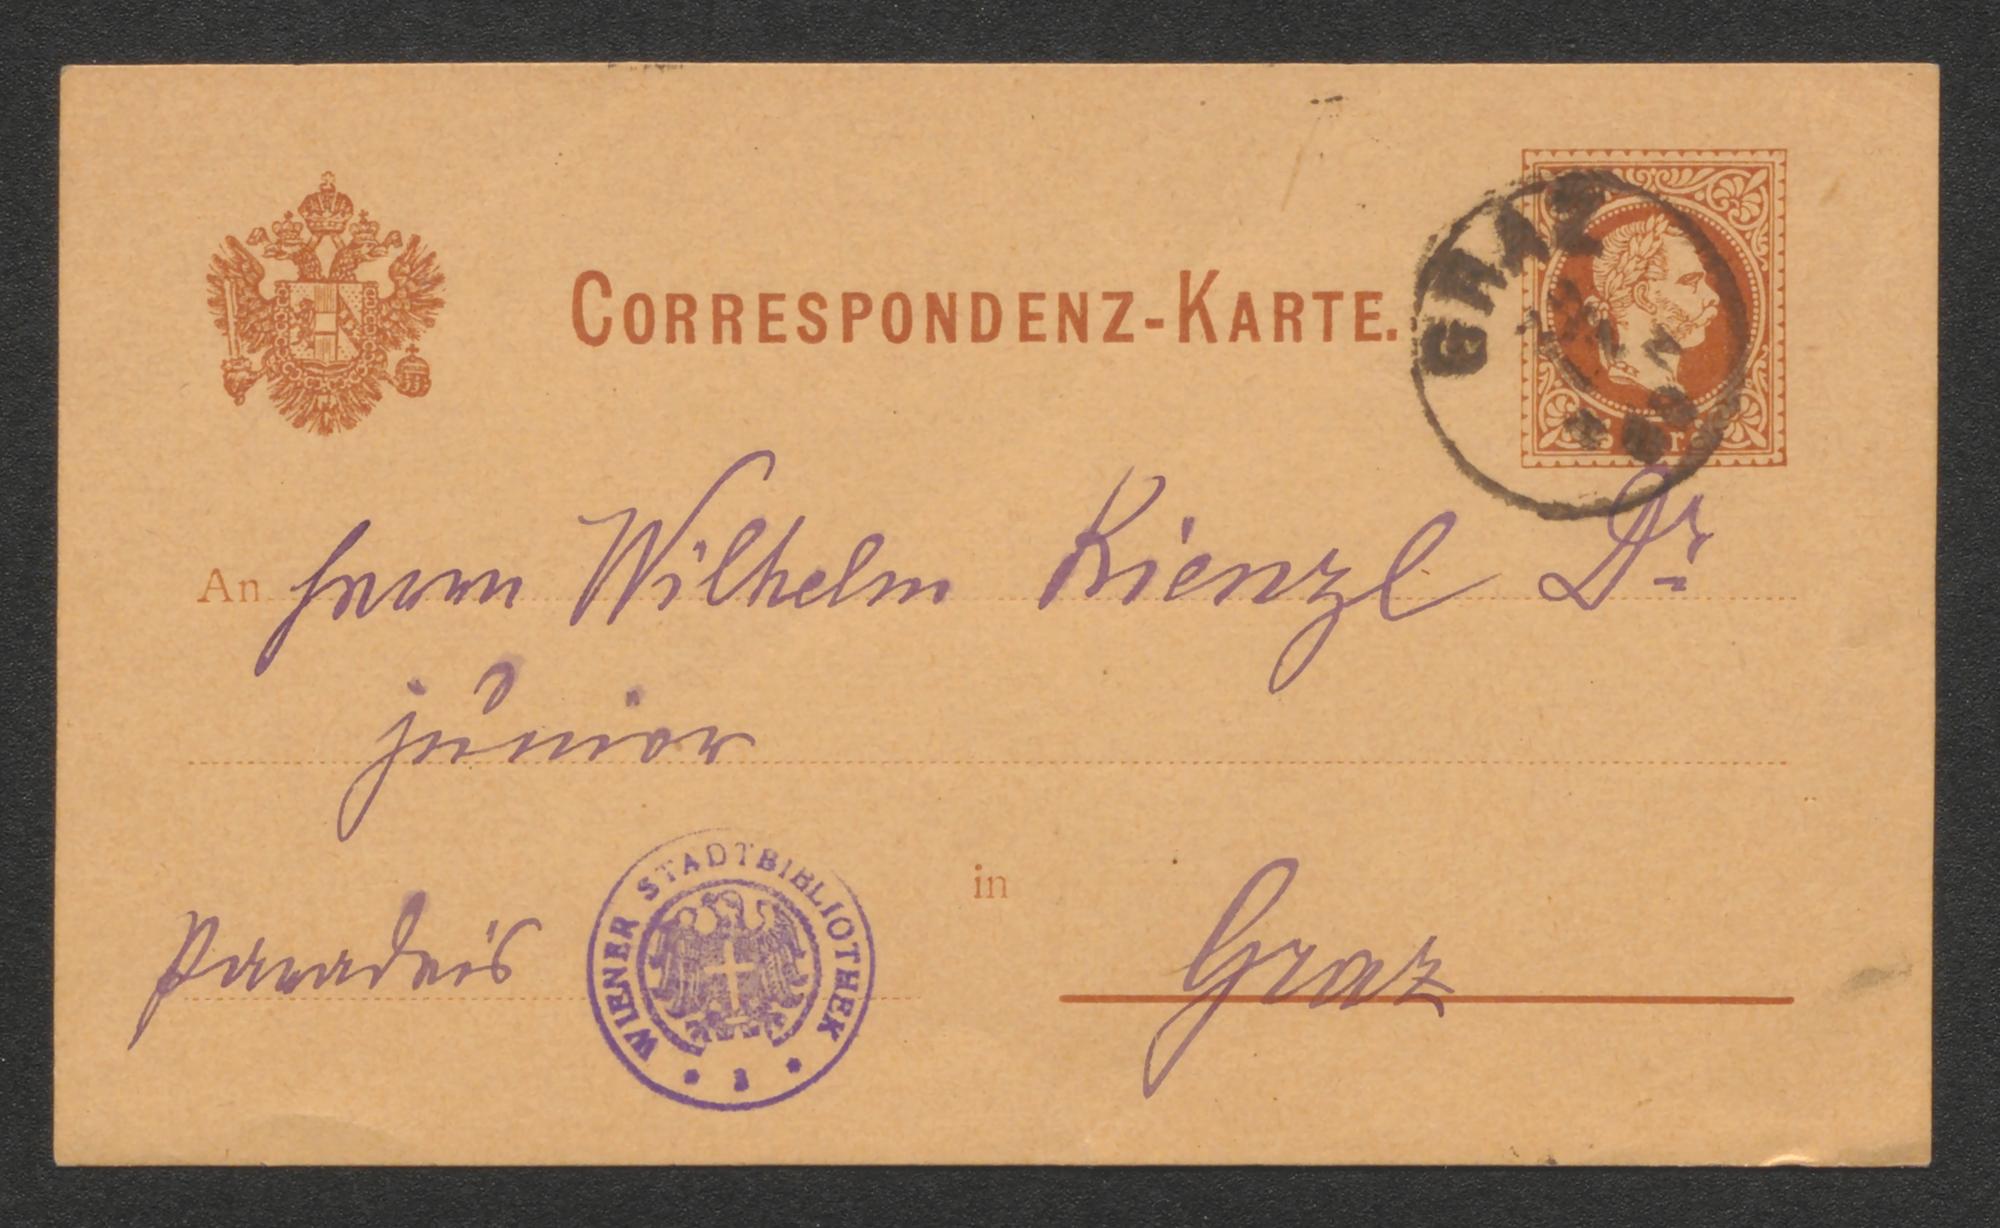 CORRESPONDENZ-KARTE.
GRAZ
An Herrn Wilhelm Kienzl Dr.
junior
Paradeis
in Graz
WIENER STADTBIBLIOTHEK